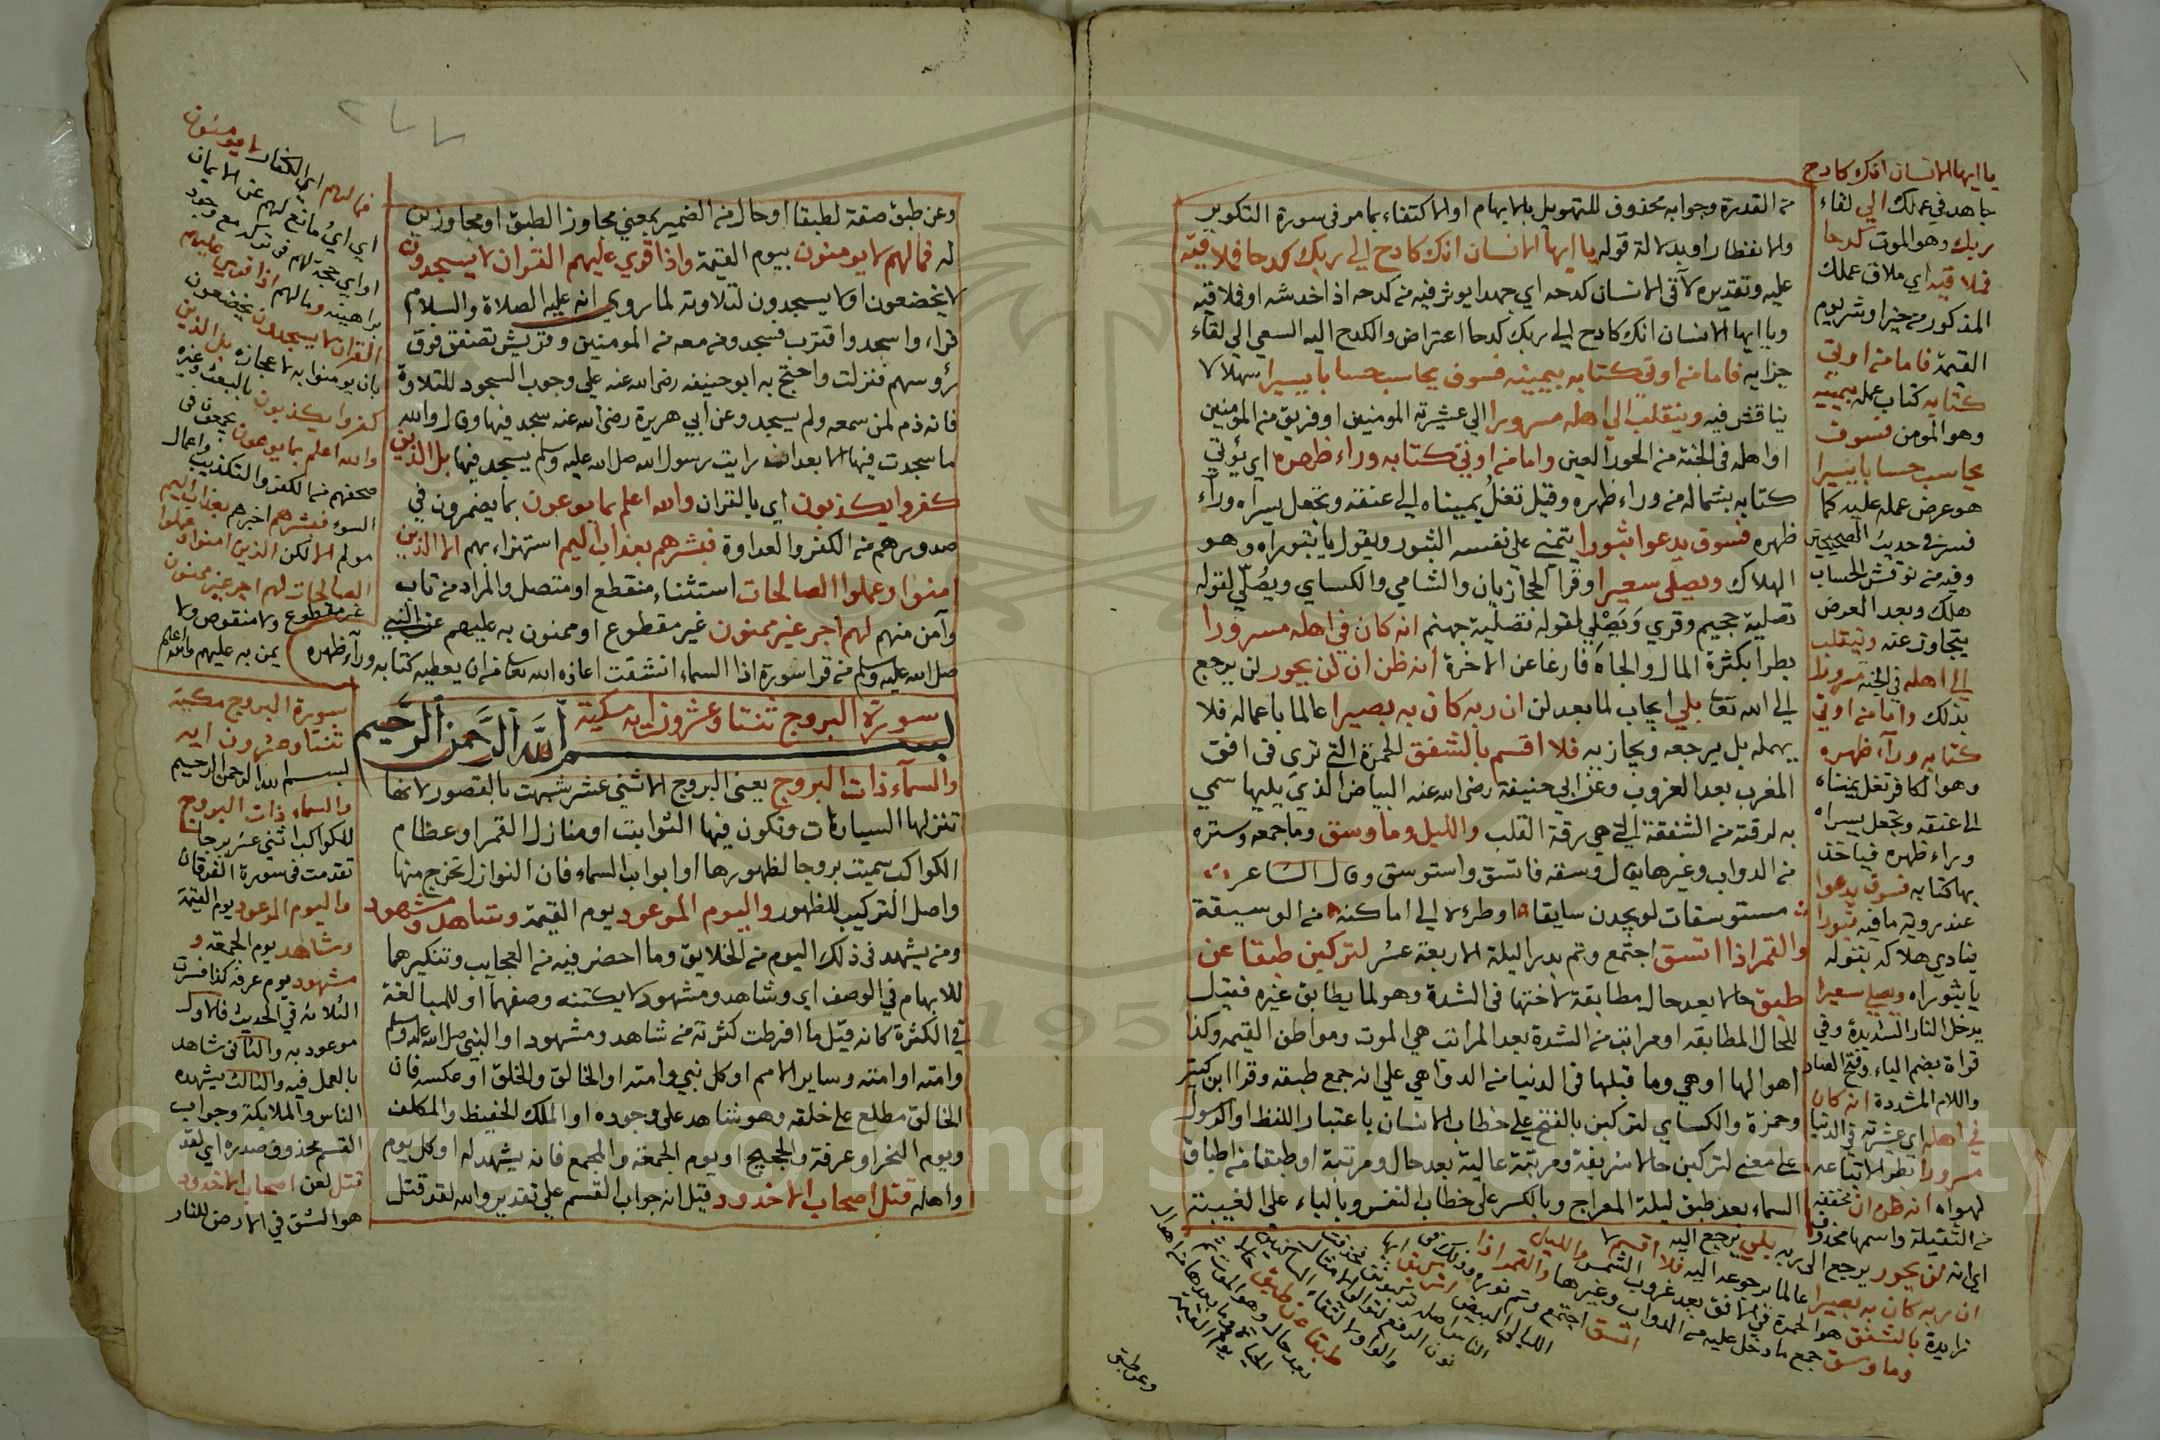 من القدرة وجوابه محذوف للتهويل بالابهام او الاكتفاء بما مر في سورة التكوير
والانفطار او بدلالة قوله يا ايها الانسان انك كادح الى ربك كدحا فملاقيه
عليه وتقديره لاقى الانسان كدحه اي جهدا يوثر فيه من كدحه اذا خدشه او فملاقيه
ويا ايها الانسان انك كادح الى ربك كدحا اعتراض والكدح اليه السعي الى لقاء
جزايه فاما من اوتى كتابه بيمينه فسوف يحاسب حسابا يسيرا سهلا لا
يناقش فيه وينقلب الى اهله مسرورا الى عشيرته المومنين او فريق من المؤمنين
او اهله في الجنة من الحور العين واما من اوتى كتابه وراء ظهره اي يؤتى
كتابه بشماله من وراء ظهره وقيل تغل يميناه الى عنقه وتجعل يسراه ورآء
ظهره فسوف يدعوا ثبورا يتمنى على نفسه الثبور ويقول يا ثبوراه وهو
الهلاك ويصلى سعيرا وقرا الحجازيان والشامي والكساي ويصلى لقوله
تصلية جحيم وقري ويصلى لقوله نصلية جهنم انه كان في اهله مسرورا
بطرا بكثرة المال والجاه فارغا عن الاخرة انه ظن ان لن يحور لن يرجع
الى الله تعا بلى ايجاب لما بعد لن ان ربه كان به بصيرا عالما باعماله فلا
يهمله بل يرجعه ويجازيه فلا اقسم بالشفق الحمرة التي ترى في افق
المغرب بعد الغروب وعن ابي حنيفة رضى الله عنه البياض الذي يليها سمي
به لرقته من الشفقة التي هي رقة القلب والليل وما وسق وما جمعه وستره
من الدواب وغيرها يقال وسقه فاتسق واستوسق وقال الشاعر
مستوسقات لو يجدن سايقا او طرده الى اماكنه من الوسيقة
والقمر اذا اتسق اجتمع وتم بدرا ليلة الاربعة عشر لتركبن طبقا عن
طبق حالا بعد حال مطابقة لاختها في الشدة وهو لما يطابق غيره فقيل
للحال المطابقه او مراتب من الشدة بعد المراتب هي الموت ومواطن القيمه وكذا
اهوالها او هي وما قبلها في الدنيا من الدواهي على انه جمع طبقه وقرا ابن كثير
وحمزة والكساي لتركبن بالفتح على خطاب الانسان باعتبار اللفظ او الرسول
على معنى لتركبن حالا شريفة ومرتبة عالية بعد حال ومرتبة او طبقا من اطباق
السماء بعد طبق ليلة المعراج وبالكسر على خطاب النفس وبالياء على الغيبة
يا ايها الانسان انك كادح
جاهد في عملك الى لقاء
ربك وهو الموت كدحا
فملاقيه اي ملاق عملك
المذكور من خير او شر يوم
القيمة فاما من اوتى
كتابه كتاب عمله بيمينه
وهو المومن فسوف
يحاسب حسابا يسيرا
هو عرض عمله عليه كما
فسر في حديث الصحيحين
وفيه من نوقش الحساب
هلك وبعد العرض
يتجاوز عنه وينقلب
الى اهله في الجنة مسرورا
بذلك واما من اوتى
كتابه ورآء ظهره
وهو الكافر تغل يمناه
الى عنقه وتجعل يسراه
وراء ظهره فياخذ
بها كتابه فسوف يدعوا
عند رويته ما فيه ثبورا
ينادي هلاكه بقوله
يا ثبوراه ويصلى سعيرا
يدخل النار الشديدة وفي
قراة بضم الياء وفتح الصاد
واللام المشددة انه كان
في اهله اي عشيرته في الدنيا
مسرورا بطرا باتباعه
لهواه انه ظن ان مخففة
من الثقيلة واسمها محذوف
اي انه لن يحور يرجع الى ربه بلى يرجع اليه
ان ربه كان به بصيرا عالما برجوعه اليه فلا اقسم لا
زايدة بالشفق هو الحمرة في الافق بعد غروب الشمس والليل
وما وسق جمع ما دخل عليه من الدواب وغيرها والقمر اذا
اتسق اجتمع وتم نوره وذلك في
الليالي البيض
طبقا عن طبق
وعن طبق
٢٧٧
وعن طبق صفة لطبقا او حال من الضمير بمعنى مجاوز الطبق او مجاوزين
له فما لهم لا يومنون بيوم القيمة واذا قري عليهم القران لا يسجدون
لا يخضعون او لا يسجدون لتلاوته لما روي انه عليه الصلاة والسلام
قراء واسجد واقترب فسجد ومن معه من المومنين وقريش تصفق فوق
رؤسهم فنزلت واحتج به ابو حنيفه رضى الله عنه على وجوب السجود للتلاوة
فانه ذم لمن سمعه ولم يسجد وعن ابي هريرة رضى الله عنه سجد فيها وقال والله
ما سجدت فيها الا بعد ان رايت رسول الله صلى الله عليه وسلم يسجد فيها بل الذين
كفروا يكذبون اي بالقران والله اعلم بما يوعون بما يضمرون في
صدورهم من الكفر والعداوة فبشرهم بعذاب اليم استهزاء بهم الا الذين
امنوا وعملوا الصالحات استثناء منقطع او متصل والمراد من تاب
وآمن منهم لهم اجر غير ممنون غير مقطوع او ممنون به عليهم عن النبي
صلى الله عليه وسلم من قرا سورة اذا السماء انشقت اعاذه الله تعا من ان يعطيه كتابه ورآء ظهره
سورة البروج ثنتا وعشرون اية مكية
بسم الله الرحمن الرحيم
والسمآء ذات البروج يعنى البروج الاثنى عشر شبهت بالقصور لانها
تنزلها السيارات وتكون فيها الثوابت او منازل القمر او عظام
الكواكب سميت بروجا لظهورها او ابواب السماء فان النوازل تخرج منها
واصل التركيب للظهور واليوم الموعود يوم القيمة وشاهد ومشهود
ومن يشهد في ذلك اليوم من الخلايق وما احضر فيه من العجايب وتنكيرهما
للابهام في الوصف اي وشاهد ومشهود لا يكتنه وصفهما او للمبالغة
في الكثرة كانه قيل ما افرطت كثرته من شاهد ومشهود او النبي صلى الله عليه وسلم
وامته او امته وساير الامم او كل نبي وامته او الخالق والخلق او عكسه فان
الخالق مطلع على خلقه وهو شاهد على وجوده او الملك الحفيظ والمكلف
ويوم النحر او عرفة والحجيج او يوم الجمعة والمجمع فانه يشهد له او كل يوم
واهله قتل اصحاب الاخدود قيل انه جواب القسم على تقدير والله لقد قتل
فما لهم اي الكفار لا يومنون
اي اي مانع لهم عن الايمان
او اي حجة لهم في تركه مع وجود
براهينه وما لهم اذا قرى عليهم
القران لا يسجدون يخضعون
بان يومنوا به لاعجازه بل الذين
كفروا يكذبون بالبعث وغيره
والله اعلم بما يوعون يجمعون في
صحفهم من الكفر والتكذيب واعمال
السوء فبشرهم اخبرهم بعذاب اليم
مولم الا لكن الذين امنوا وعملوا
الصالحات لهم اجر غير ممنون
غير مقطوع ولا منقوص ولا
يمن به عليهم والله اعلم
سورة البروج مكية
ثنتا وعشرون اية
بسم الله الرحمن الرحيم
والسماء ذات البروج
للكواكب اثنى عشر برجا
تقدمت في سورة الفرقان
واليوم الموعود يوم القيمة
وشاهد يوم الجمعة و
مشهود يوم عرفة كذا فسرت
الثلاثة في الحديث فالاول
موعود به والثاني شاهد
بالعمل فيه والثالث يشهده
الناس والملايكة وجواب
القسم محذوف صدره اي لقد
قتل لعن اصحاب الاخدود
هو الشق في الارض للنار
Copyright © King Saud University
1957